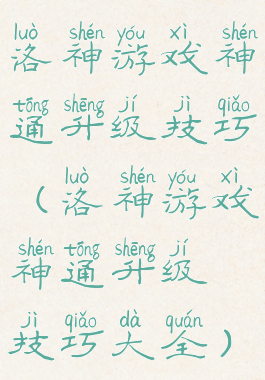 luò shén yóu xì shén
洛神游戏神
tōng shēng jí jì qiǎo
通升级技巧
luò shén yóu xì
（洛神游戏
shén tōng shēng jí
神通升级
jì qiǎo dà quán
技巧大全）